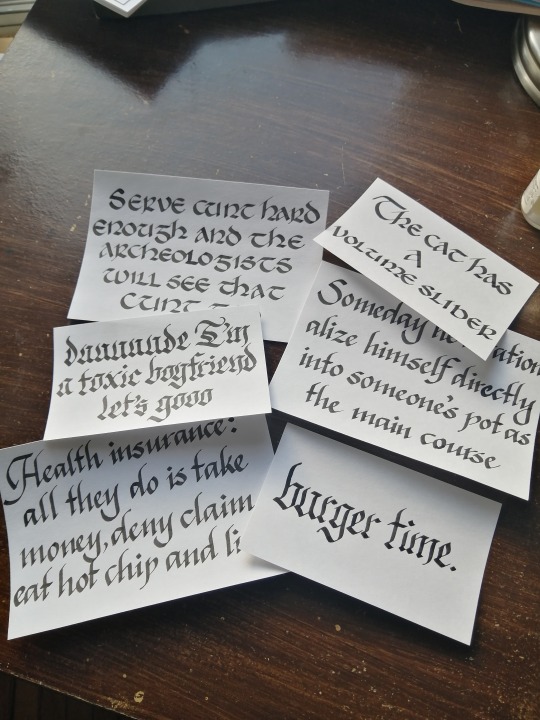 Serve cunt hard
enough and the
archeologists
will see that
cunt
The cat has
a
volume slider
daaaaude I'm
a toxic boyfriend
let's gooo
Someday
alize himself directly
into someone's pot as
the main course
Health insurance:
all they do is take
money, deny claim
eat hot chip and
burger time.